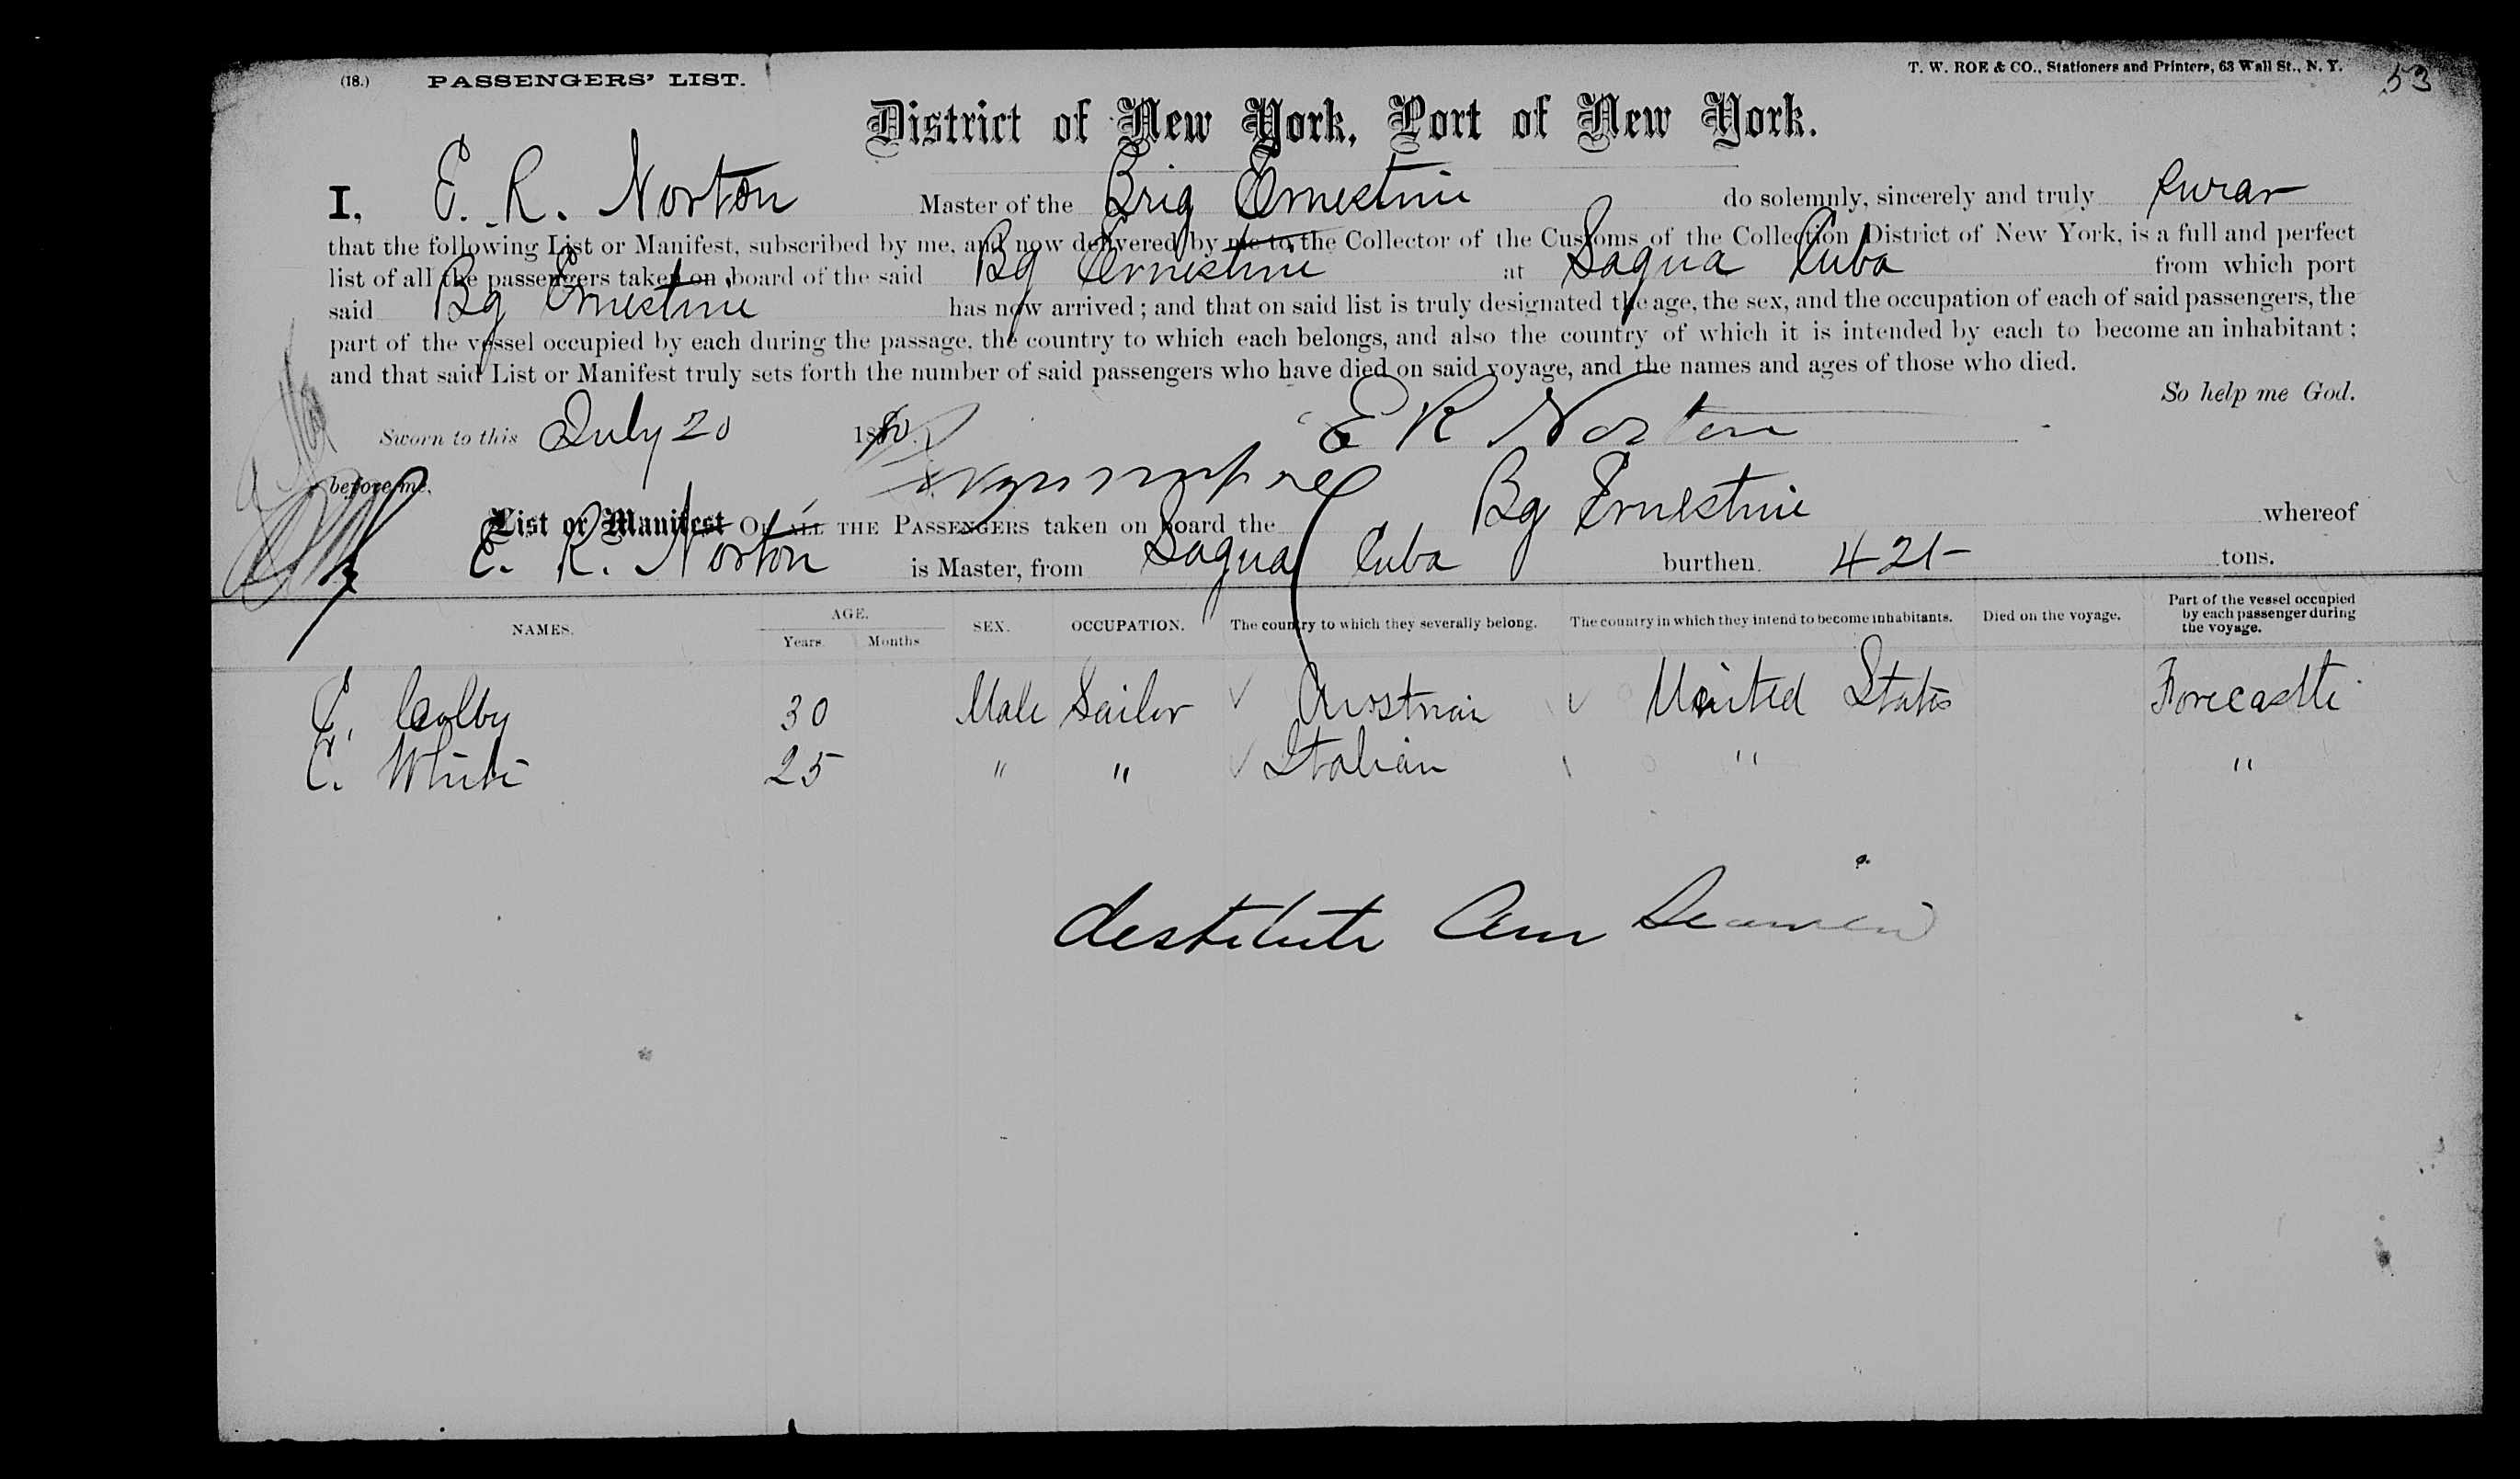 (18.) PASSENGERS' LIST. T. W. ROE & CO., Stationers and Printers, 63 Wall St., N. Y. 53
District of New York, Port of New York.
I, E. R. Norton Master of the Brig Ernestine do solemnly, sincerely and truly swear
that the following List or Manifest, subscribed by me, and now delivered by me to the Collector of the Customs of the Collection District of New York, is a full and perfect
list of all the passengers taken on board of the said Bg Ernestine at Sagua Cuba from which port
said Bg Ernestine has now arrived; and that on said list is truly designated the age, the sex, and the occupation of each of said passengers, the
part of the vessel occupied by each during the passage, the country to which each belongs, and also the country of which it is intended by each to become an inhabitant;
and that said List or Manifest truly sets forth the number of said passengers who have died on said voyage, and the names and ages of those who died.
So help me God.
Sworn to this July 20 1880. E R Norton
before me,
List or Manifest OF ALL THE PASSENGERS taken on board the Bg Ernestine whereof
E. R. Norton is Master, from Sagua Cuba burthen 421 tons.
NAMES. AGE. Years. Months SEX. OCCUPATION. The country to which they severally belong. The country in which they intend to become inhabitants. Died on the voyage. Part of the vessel occupied by each passenger during the voyage.
Colby 30 Male Sailor Austrian United States Forecastle
C. White 25 " " Italian " "
destitute Am Seamen